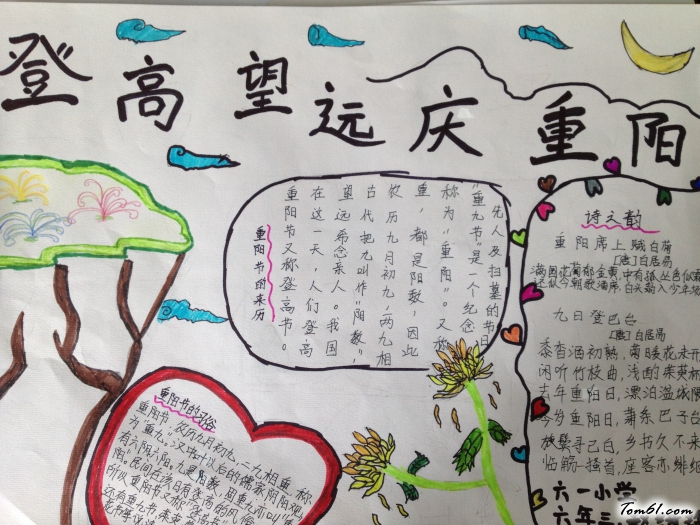 登高望远庆重阳
重阳节的来历
重阳节又称登高节。
在这一天，人们登高
望远希念亲人。我国
古代把九叫作“阳数”，
农历九月初九，两九相
重，都是阳数，因此
称为“重阳”。又称
“重九节”是一个纪念
先人及扫墓的节日
诗之韵
重阳席上赋白菊
[唐]白居易
满园花菊郁金黄，中有孤丛色似
还似今朝歌酒席，白头翁入少年
九日登巴台
[唐]白居易
黍香酒初熟，菊暖花未开
闲听竹枝曲，浅酌茱萸杯
去年重阳日，漂泊湓城隈
今岁重阳日，萧条巴子台
旋鬓寻已白，乡书久不来
临觞一搔首，座客亦徘徊
六一小学
六年三
重阳节的习俗
重阳节，农历九月初九，二九相重，称
为“重九”。汉中叶以后的儒家阴阳观，
有六阴九阳，九是阳数，固重九亦叫“重
阳”。民间在该日有登高的风俗，
所以重阳节又称“登高
Tom61.com